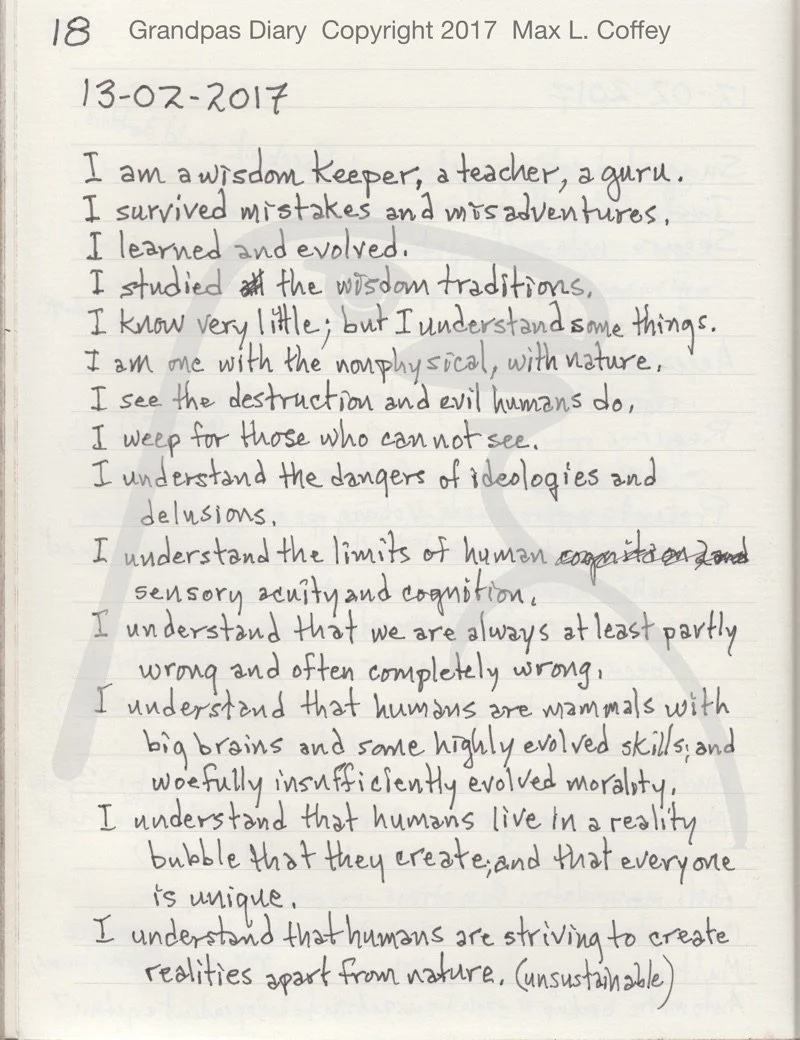 18 Grandpas Diary Copyright 2017 Max L. Coffey
13-02-2017
I am a wisdom keeper, a teacher, a guru.
I survived mistakes and misadventures.
I learned and evolved.
I studied the wisdom traditions.
I know very little; but I understand some things.
I am one with the nonphysical, with nature.
I see the destruction and evil humans do.
I weep for those who cannot see.
I understand the dangers of ideologies and
delusions.
I understand the limits of human cognition and
sensory acuity and cognition.
I understand that we are always at least partly
wrong and often completely wrong.
I understand that humans are mammals with
big brains and some highly evolved skills; and
woefully insufficiently evolved morality.
I understand that humans live in a reality
bubble that they create; and that everyone
is unique.
I understand that humans are striving to create
realities apart from nature. (unsustainable)